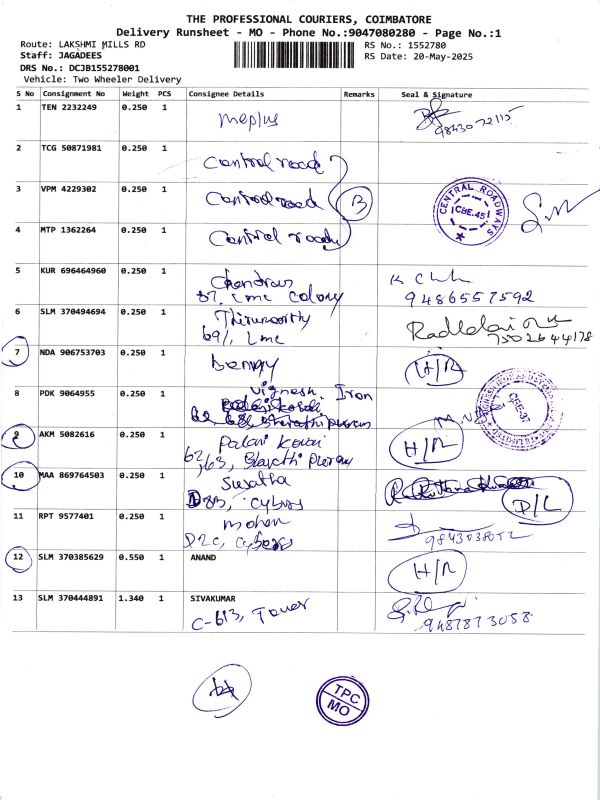 THE PROFESSIONAL COURIERS, COIMBATORE
Delivery Runsheet - MO - Phone No.:9047080280 - Page No.:1
Route: LAKSHMI MILLS RD RS No.: 1552780
Staff: JAGADEES RS Date: 20-May-2025
DRS No.: DCJB155278001
Vehicle: Two Wheeler Delivery
S No Consignment No Weight PCS Consignee Details Remarks Seal & Signature
1 TEN 2232249 0.250 1 meplus 9843072115
2 TCG 50871981 0.250 1 Central road
3 VPM 4229302 0.250 1 Central road B CENTRAL ROADWAYS CBE-45
4 MTP 1362264 0.250 1 Central road
5 KUR 696464960 0.250 1 Chendran
87, Lmc Colony 9486557592
6 SLM 370494694 0.250 1 Thirumoorthy
69/, Lmc 7502644178
7 NDA 906753703 0.250 1 H/R
8 PDK 9064955 0.250 1 Vignesh Iron
Bharathi puram CBE-37
9 AKM 5082616 0.250 1 Palani Kovai H/R
62/63, Bharathi Puram
10 MAA 869764503 0.250 1 Sujatha D/L
D8B, Cybros
11 RPT 9577401 0.250 1 mohan
D2C, Cybros 9843038052
12 SLM 370385629 0.550 1 ANAND H/R
13 SLM 370444891 1.340 1 SIVAKUMAR
C-613, Tower 9487873058
TPC
MO